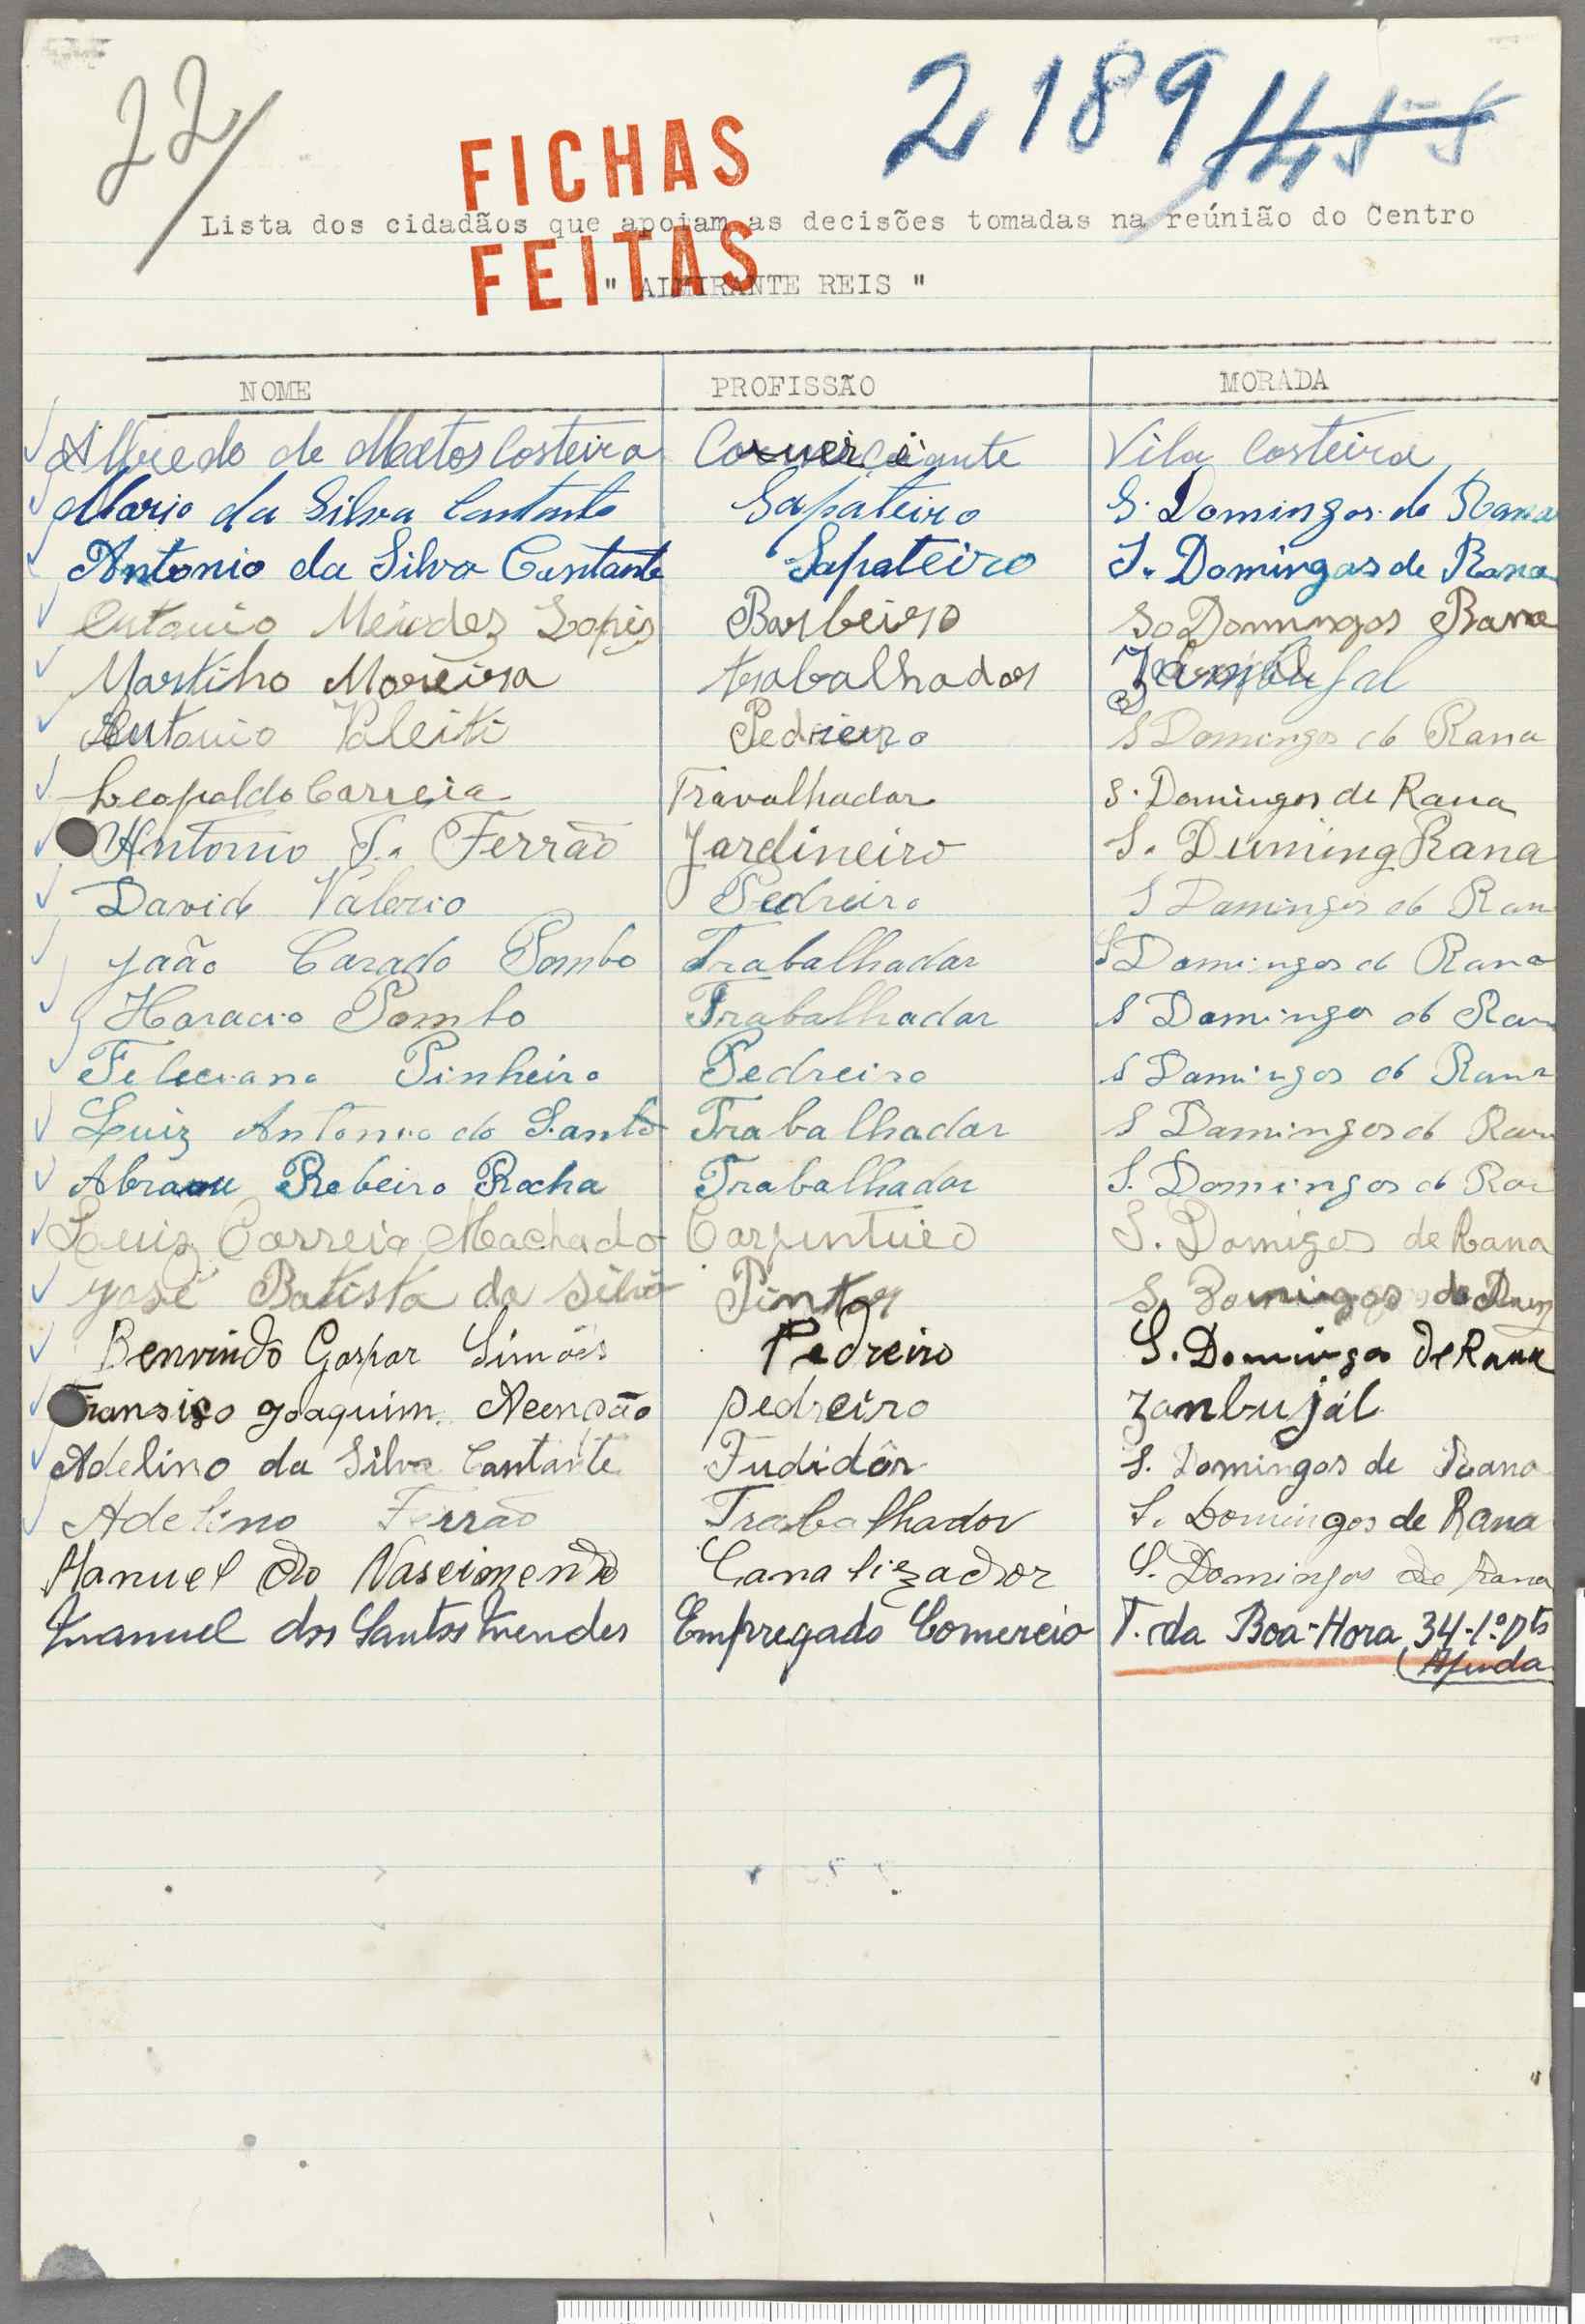 22/
2189 1455
FICHAS
Lista dos cidadãos que apoiam as decisões tomadas na reúnião do Centro
FEITAS
" ALMIRANTE REIS "
NOME PROFISSÃO MORADA
Alfredo de Matos Costeira Comerciante Vila Costeira
Mario da Silva Cantante Sapateiro S. Domingos de Rana
Antonio da Silva Cantante Sapateiro S. Domingos de Rana
Antonio Mendes Lopes Barbeiro So Domingos Rana
Martiho Moreira trabalhador Zambujal
Antonio Valeiti Pedreiro S Domingos de Rana
Leopoldo Correia Travalhador S. Domingos de Rana
Antonio S. Ferrão Jardineiro S. Duming Rana
David Valerio Pedreiro S Domingos de Ran
João Carado Pombo Trabalhador S Domingos de Rana
Horacio Pombo Trabalhador S Domingos de Ran
Feleciano Pinheiro Pedreiro S Domingos de Rana
Luiz Antonio do Santo Trabalhador S Domingos de Ran
Abraou Rebeiro Rocha Trabalhador S. Domingos de Ra
Luiz Correia Machado Carpintueo S. Domigos de Rana
José Batista da Silva Pintor S. Domingos de
Benvindo Gaspar Simões Pedreiro S. Domingos de Rana
Fransiso Joaquim Acensão pedreiro Zambujál
Adelino da Silva Cantante Fudidôr S. Domingos de Rana
Adelino Ferrão Trabalhador S. Domingos de Rana
Manuel do Nascimento Canalizador S. Domingos de Rana
Manuel dos Santos Mendes Empregado Comercio T. da Boa-Hora 34-1º Dtº
(Ajuda